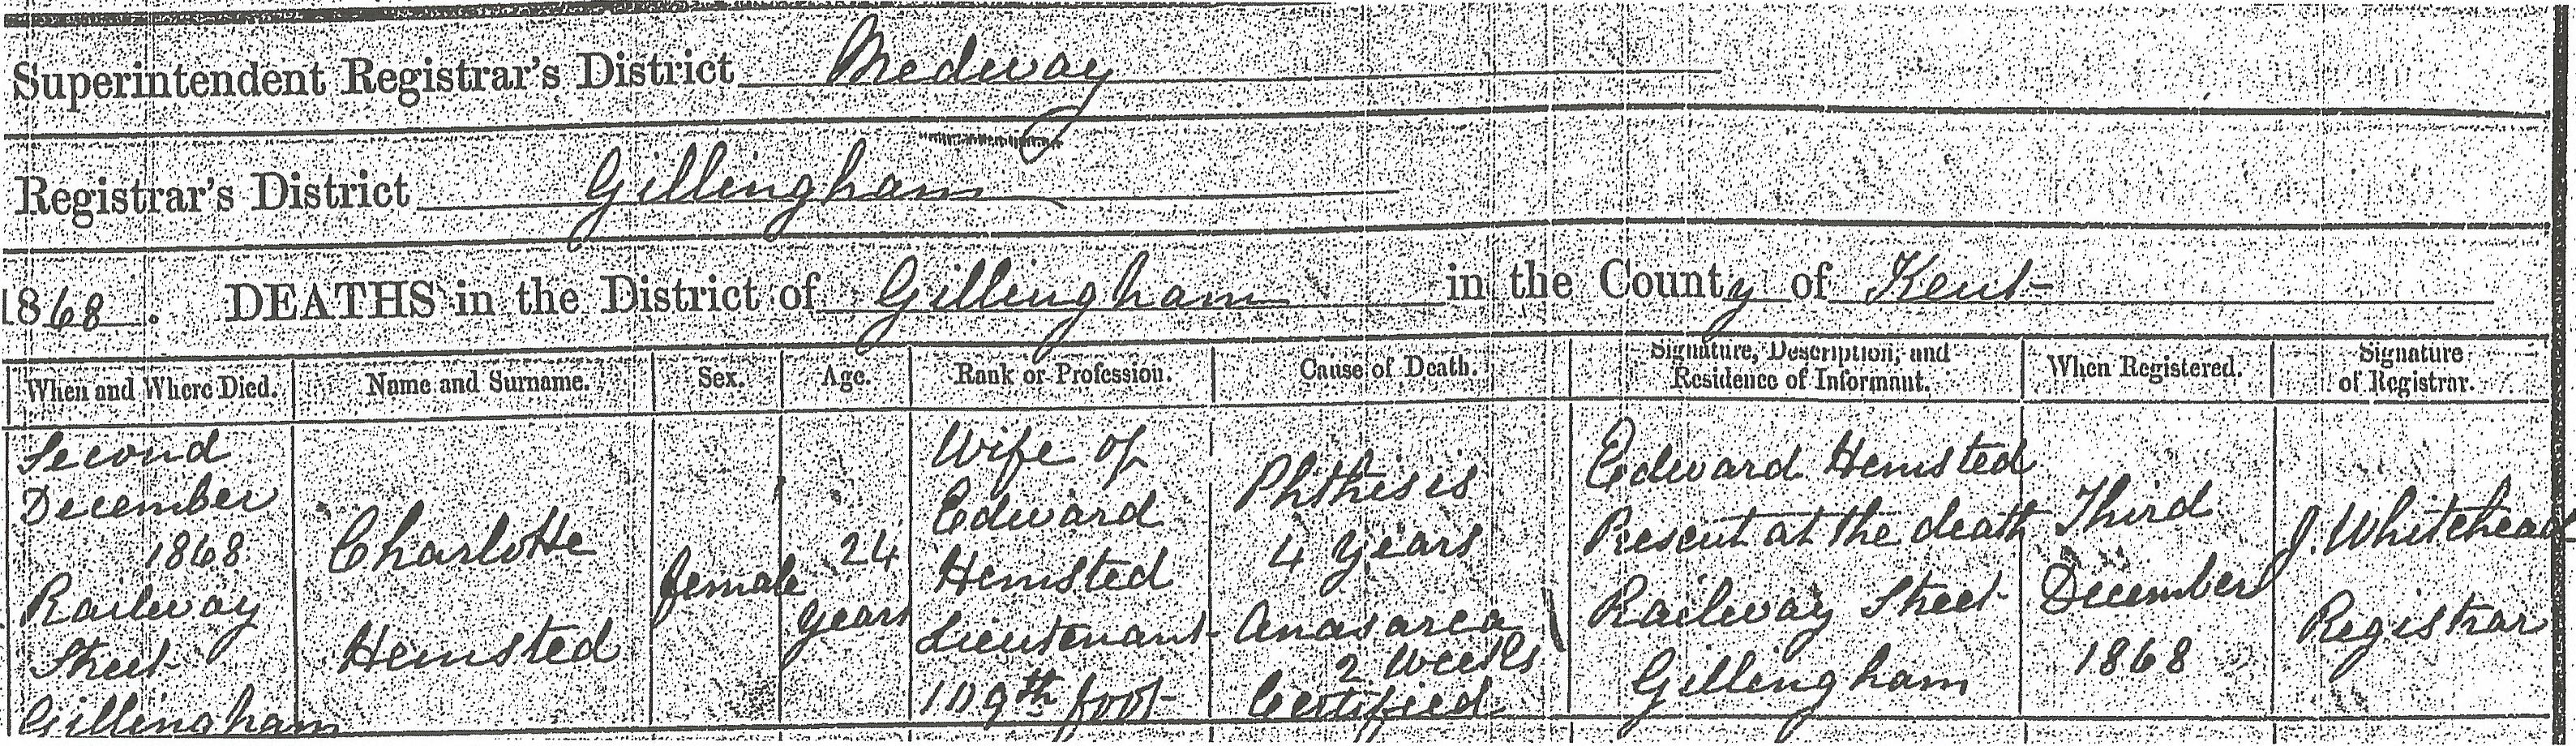 Superintendent Registrar's District Medway
Registrar's District Gillingham
1868. DEATHS in the District of Gillingham in the County of Kent
When and Where Died.
Name and Surname.
Sex.
Age.
Rank or Profession.
Cause of Death.
Signature, Description, and
Residence of Informant.
When Registered.
Signature
of Registrar.
Second
December
1868
Railway
Street
Gillingham
Charlotte
Hemsted
female
24
years
Wife of
Edward
Hemsted
Lieutenant
109th foot
Phthisis
4 years
Anasarca
2 Weeks
Certified
Edward Hemsted
Present at the death
Railway Street
Gillingham
Third
December
1868
J. Whitehead
Registrar